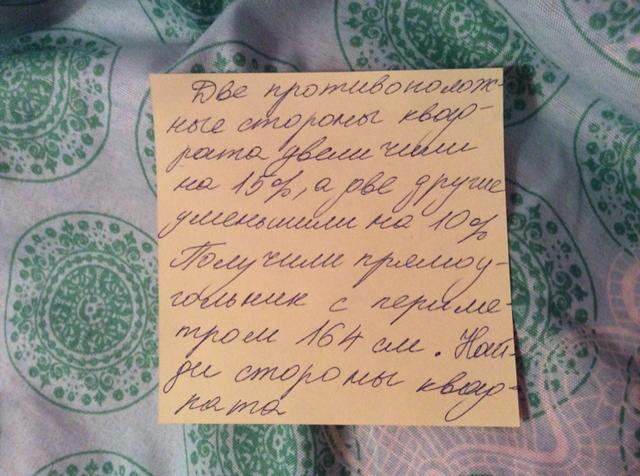 Две противополож-
ные стороны квад-
рата увеличили
на 15%, а две другие
уменьшили на 10%
Получили прямоу-
гольник с периме-
тром 164 см. Най-
ди стороны квад-
рата